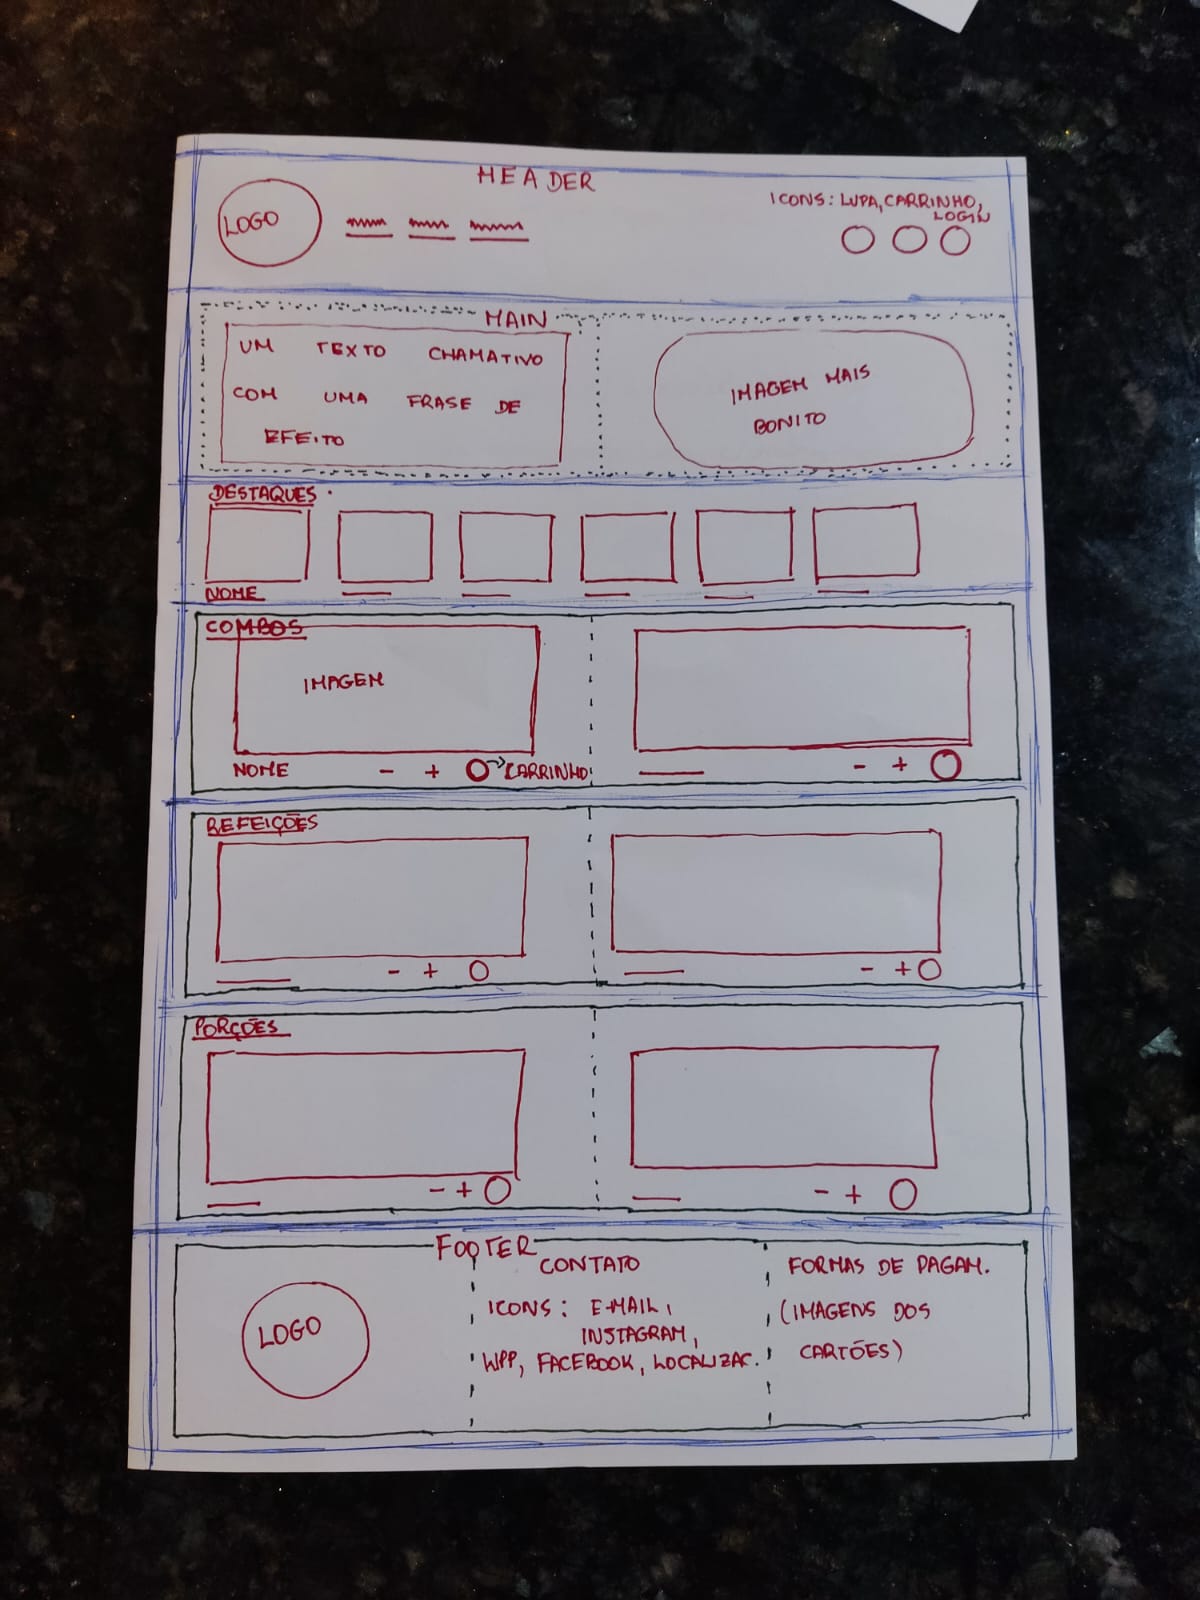 HEADER
LOGO
ICONS: LUPA, CARRINHO,
LOGIN
MAIN
UM TEXTO CHAMATIVO
COM UMA FRASE DE
EFEITO
IMAGEM MAIS
BONITO
DESTAQUES
NOME
COMBOS
IMAGEM
NOME - + CARRINHO
- +
REFEIÇÕES
- +
- +
PORÇÕES
- +
- +
FOOTER
LOGO
CONTATO
ICONS: E-MAIL,
INSTAGRAM,
WPP, FACEBOOK, LOCALIZAC.
FORMAS DE PAGAM.
(IMAGENS DOS
CARTÕES)